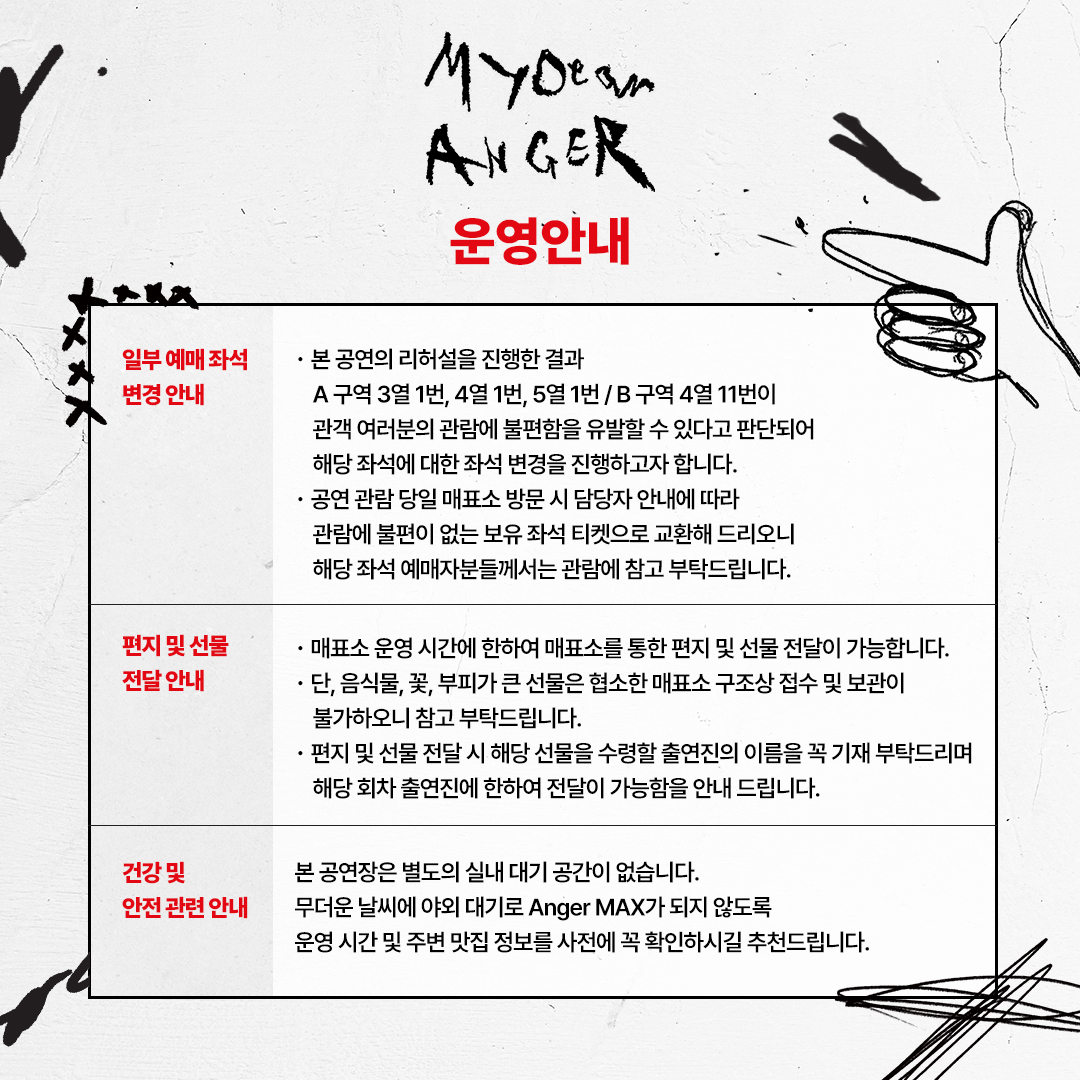 MY Dear
ANGER
운영안내
일부 예매 좌석
변경 안내
· 본 공연의 리허설을 진행한 결과
A 구역 3열 1번, 4열 1번, 5열 1번 / B 구역 4열 11번이
관객 여러분의 관람에 불편함을 유발할 수 있다고 판단되어
해당 좌석에 대한 좌석 변경을 진행하고자 합니다.
· 공연 관람 당일 매표소 방문 시 담당자 안내에 따라
관람에 불편이 없는 보유 좌석 티켓으로 교환해 드리오니
해당 좌석 예매자분들께서는 관람에 참고 부탁드립니다.
편지 및 선물
전달 안내
· 매표소 운영 시간에 한하여 매표소를 통한 편지 및 선물 전달이 가능합니다.
· 단, 음식물, 꽃, 부피가 큰 선물은 협소한 매표소 구조상 접수 및 보관이
불가하오니 참고 부탁드립니다.
· 편지 및 선물 전달 시 해당 선물을 수령할 출연진의 이름을 꼭 기재 부탁드리며
해당 회차 출연진에 한하여 전달이 가능함을 안내 드립니다.
건강 및
안전 관련 안내
본 공연장은 별도의 실내 대기 공간이 없습니다.
무더운 날씨에 야외 대기로 Anger MAX가 되지 않도록
운영 시간 및 주변 맛집 정보를 사전에 꼭 확인하시길 추천드립니다.